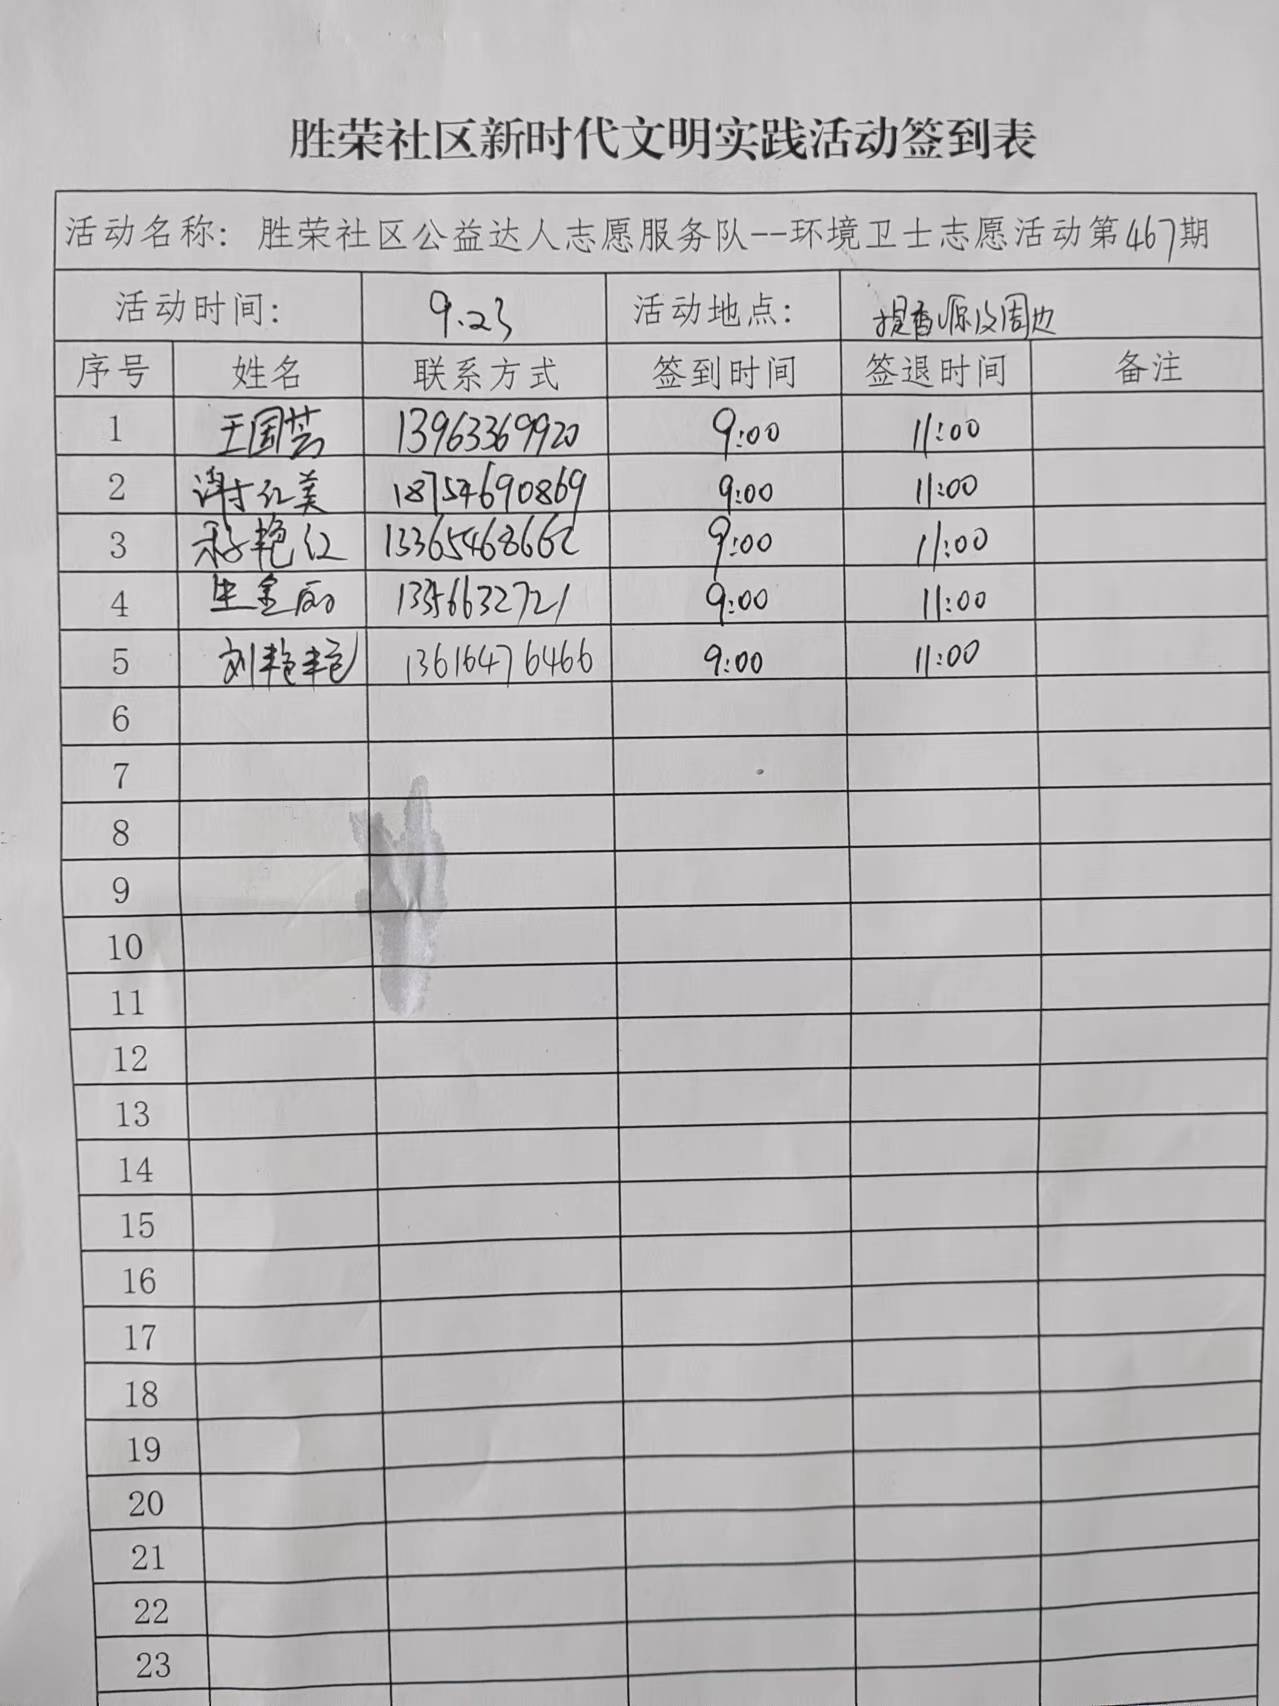 胜荣社区新时代文明实践活动签到表
活动名称：胜荣社区公益达人志愿服务队--环境卫士志愿活动第467期
活动时间： 9.23 活动地点： 提香源及周边
序号 姓名 联系方式 签到时间 签退时间 备注
1 王国芸 13963369920 9:00 11:00
2 谢红美 18754690869 9:00 11:00
3 艳红 13365468662 9:00 11:00
4 生金丽 9:00 11:00
5 刘艳艳 13616476466 9:00 11:00
6
7
8
9
10
11
12
13
14
15
16
17
18
19
20
21
22
23